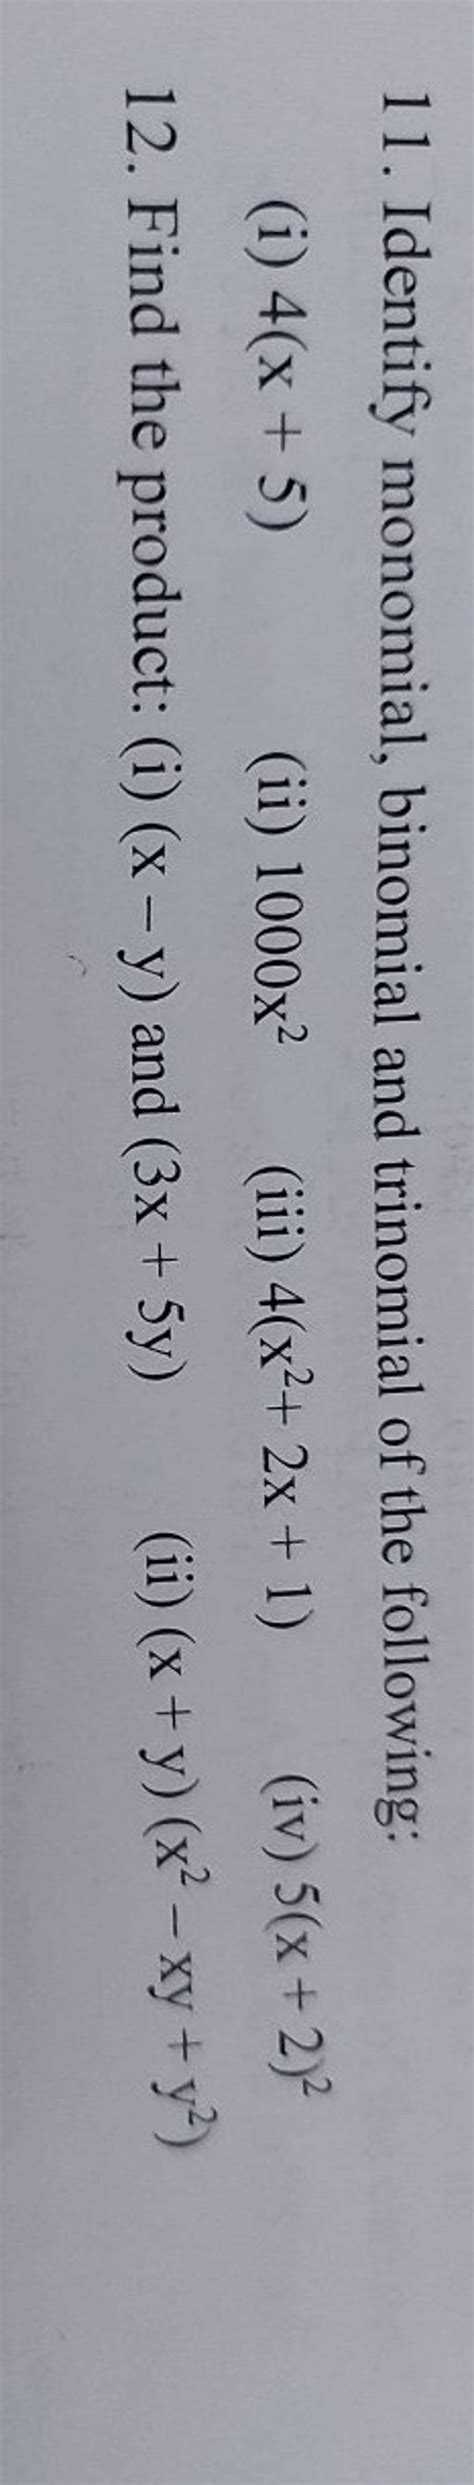 11. Identify monomial, binomial and trinomial of the following:
(i) 4(x + 5) (ii) 1000x² (iii) 4(x²+ 2x + 1) (iv) 5(x + 2)²
12. Find the product: (i) (x – y) and (3x + 5y) (ii) (x + y) (x² – xy + y²)